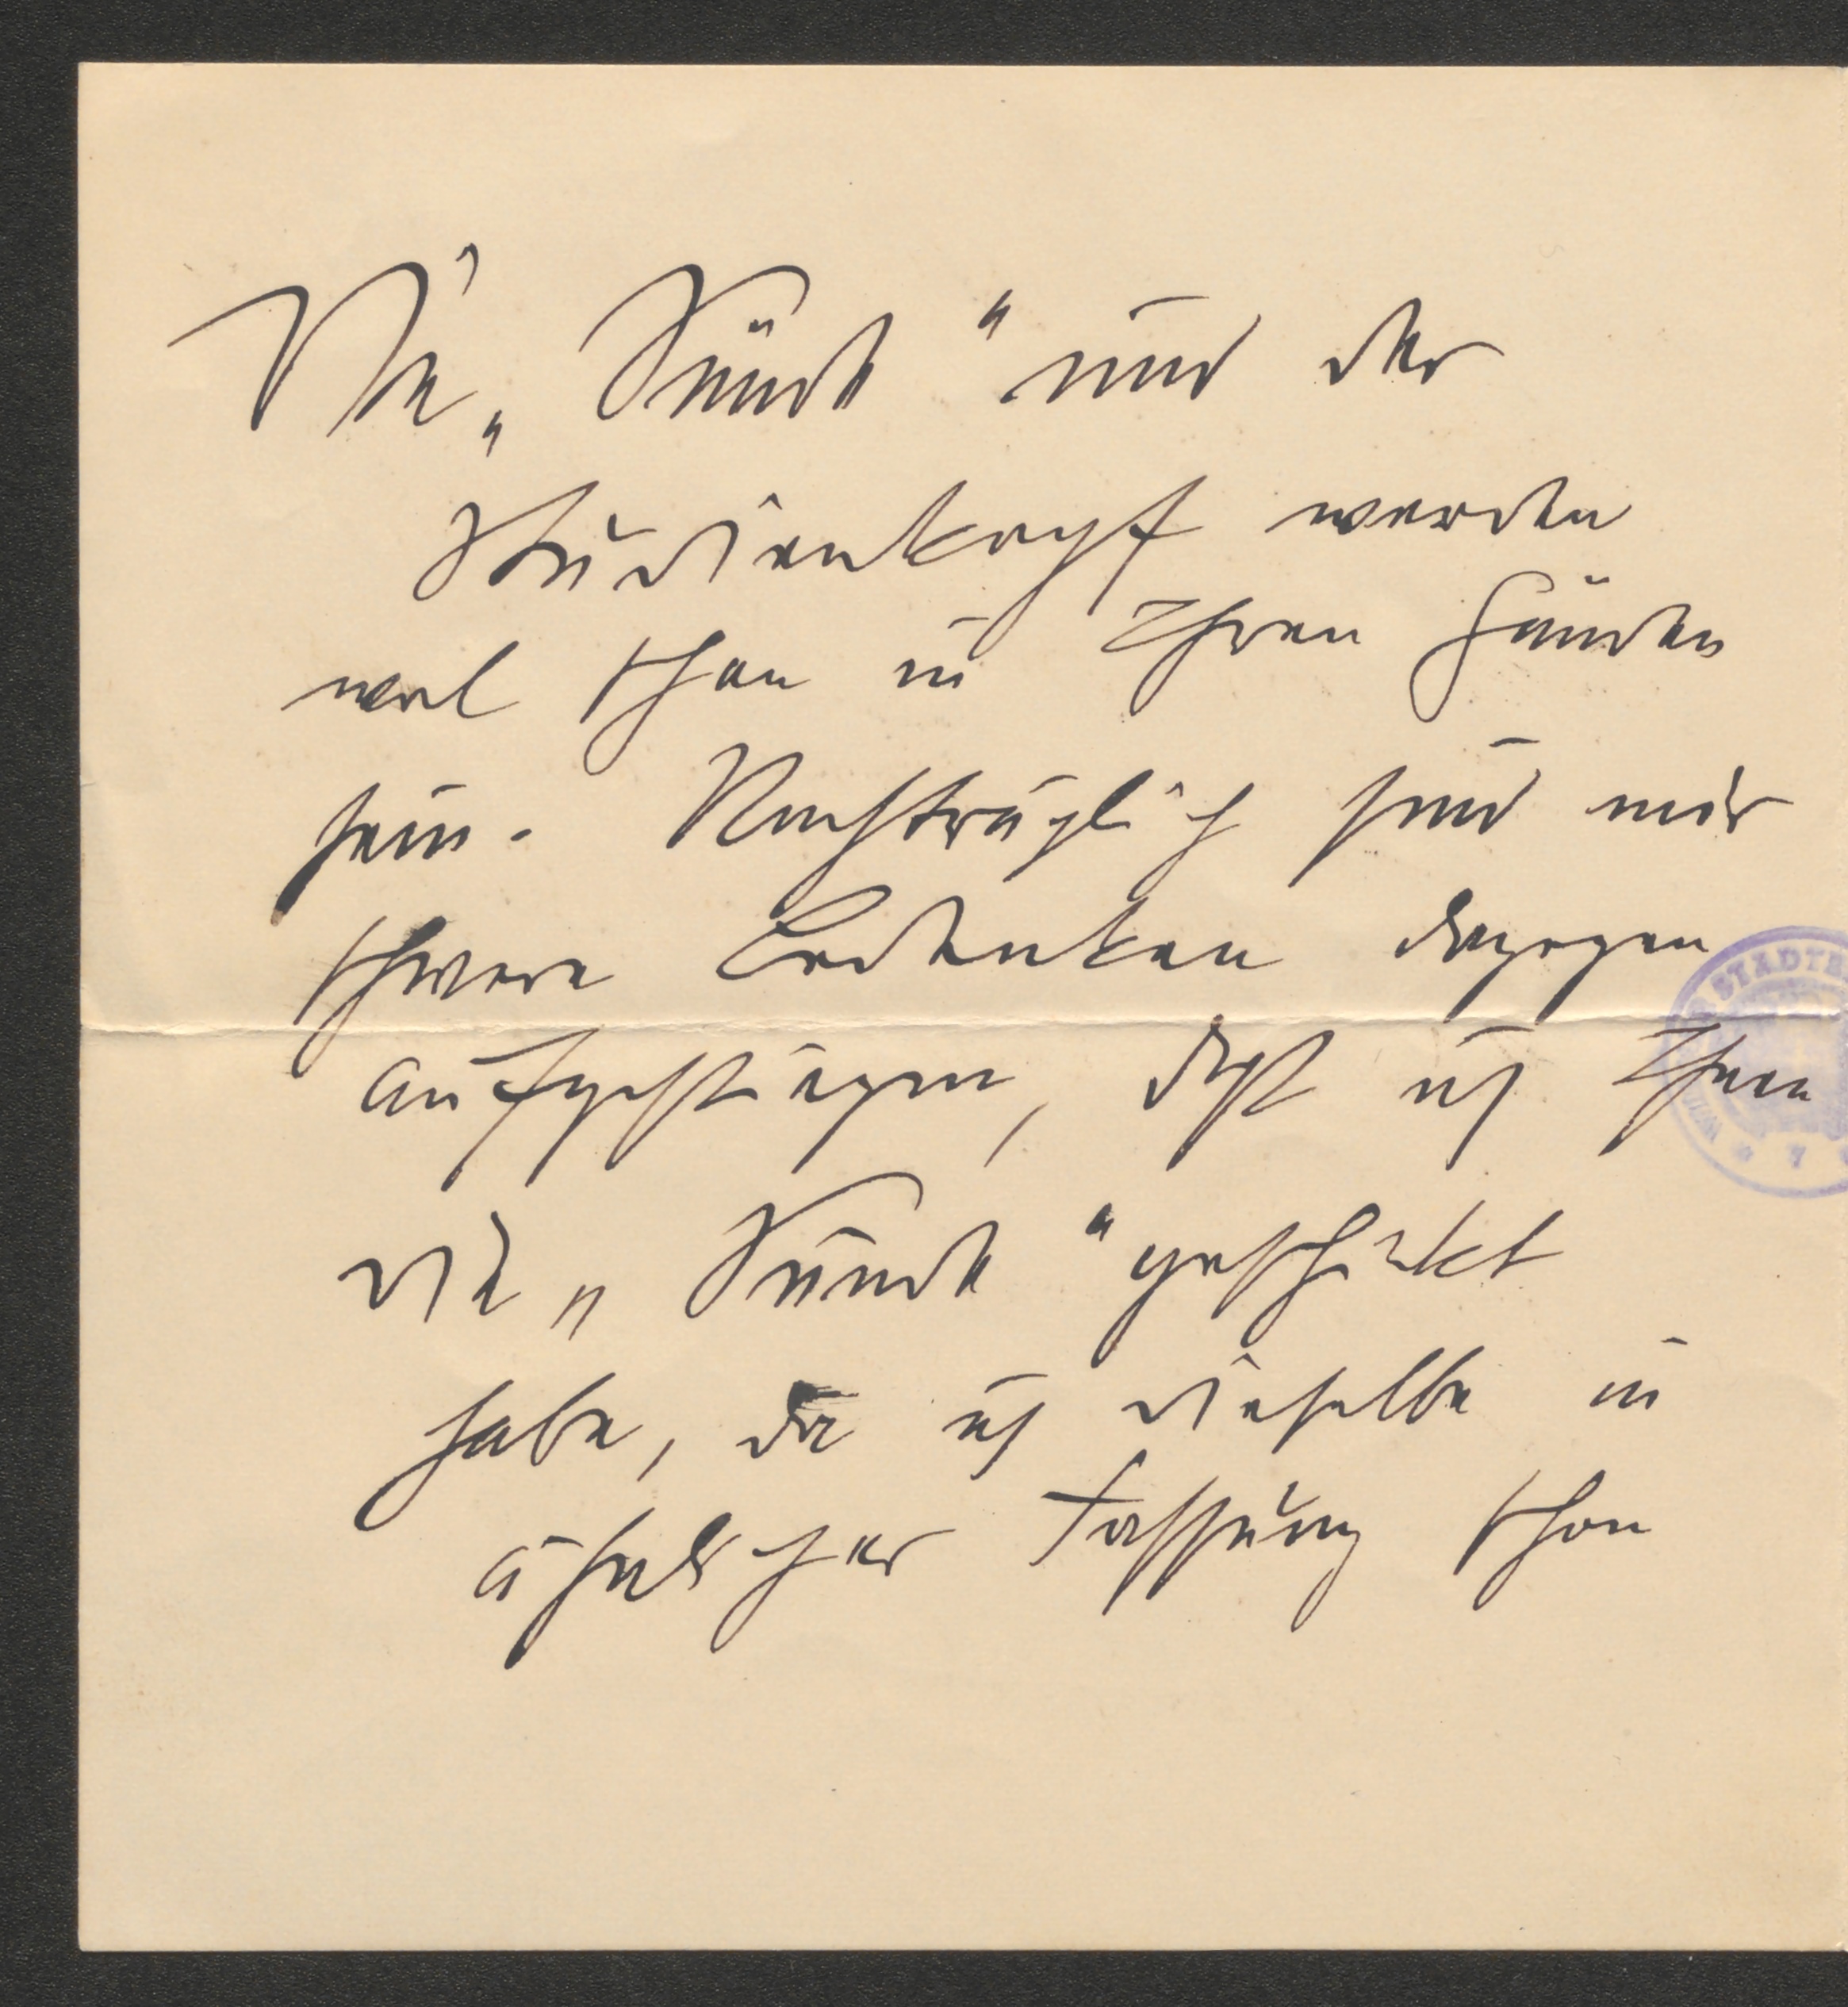 Die „Sünde“ und der
Studienkopf werden
wol schon in Ihren Händen
sein. Nachträglich sind mir
schwere Bedenken dagegen
aufgestiegen, daß ich Ihnen
die „Sünde“ geschickt
habe, da ich dieselbe in
ähnlicher Fassung schon